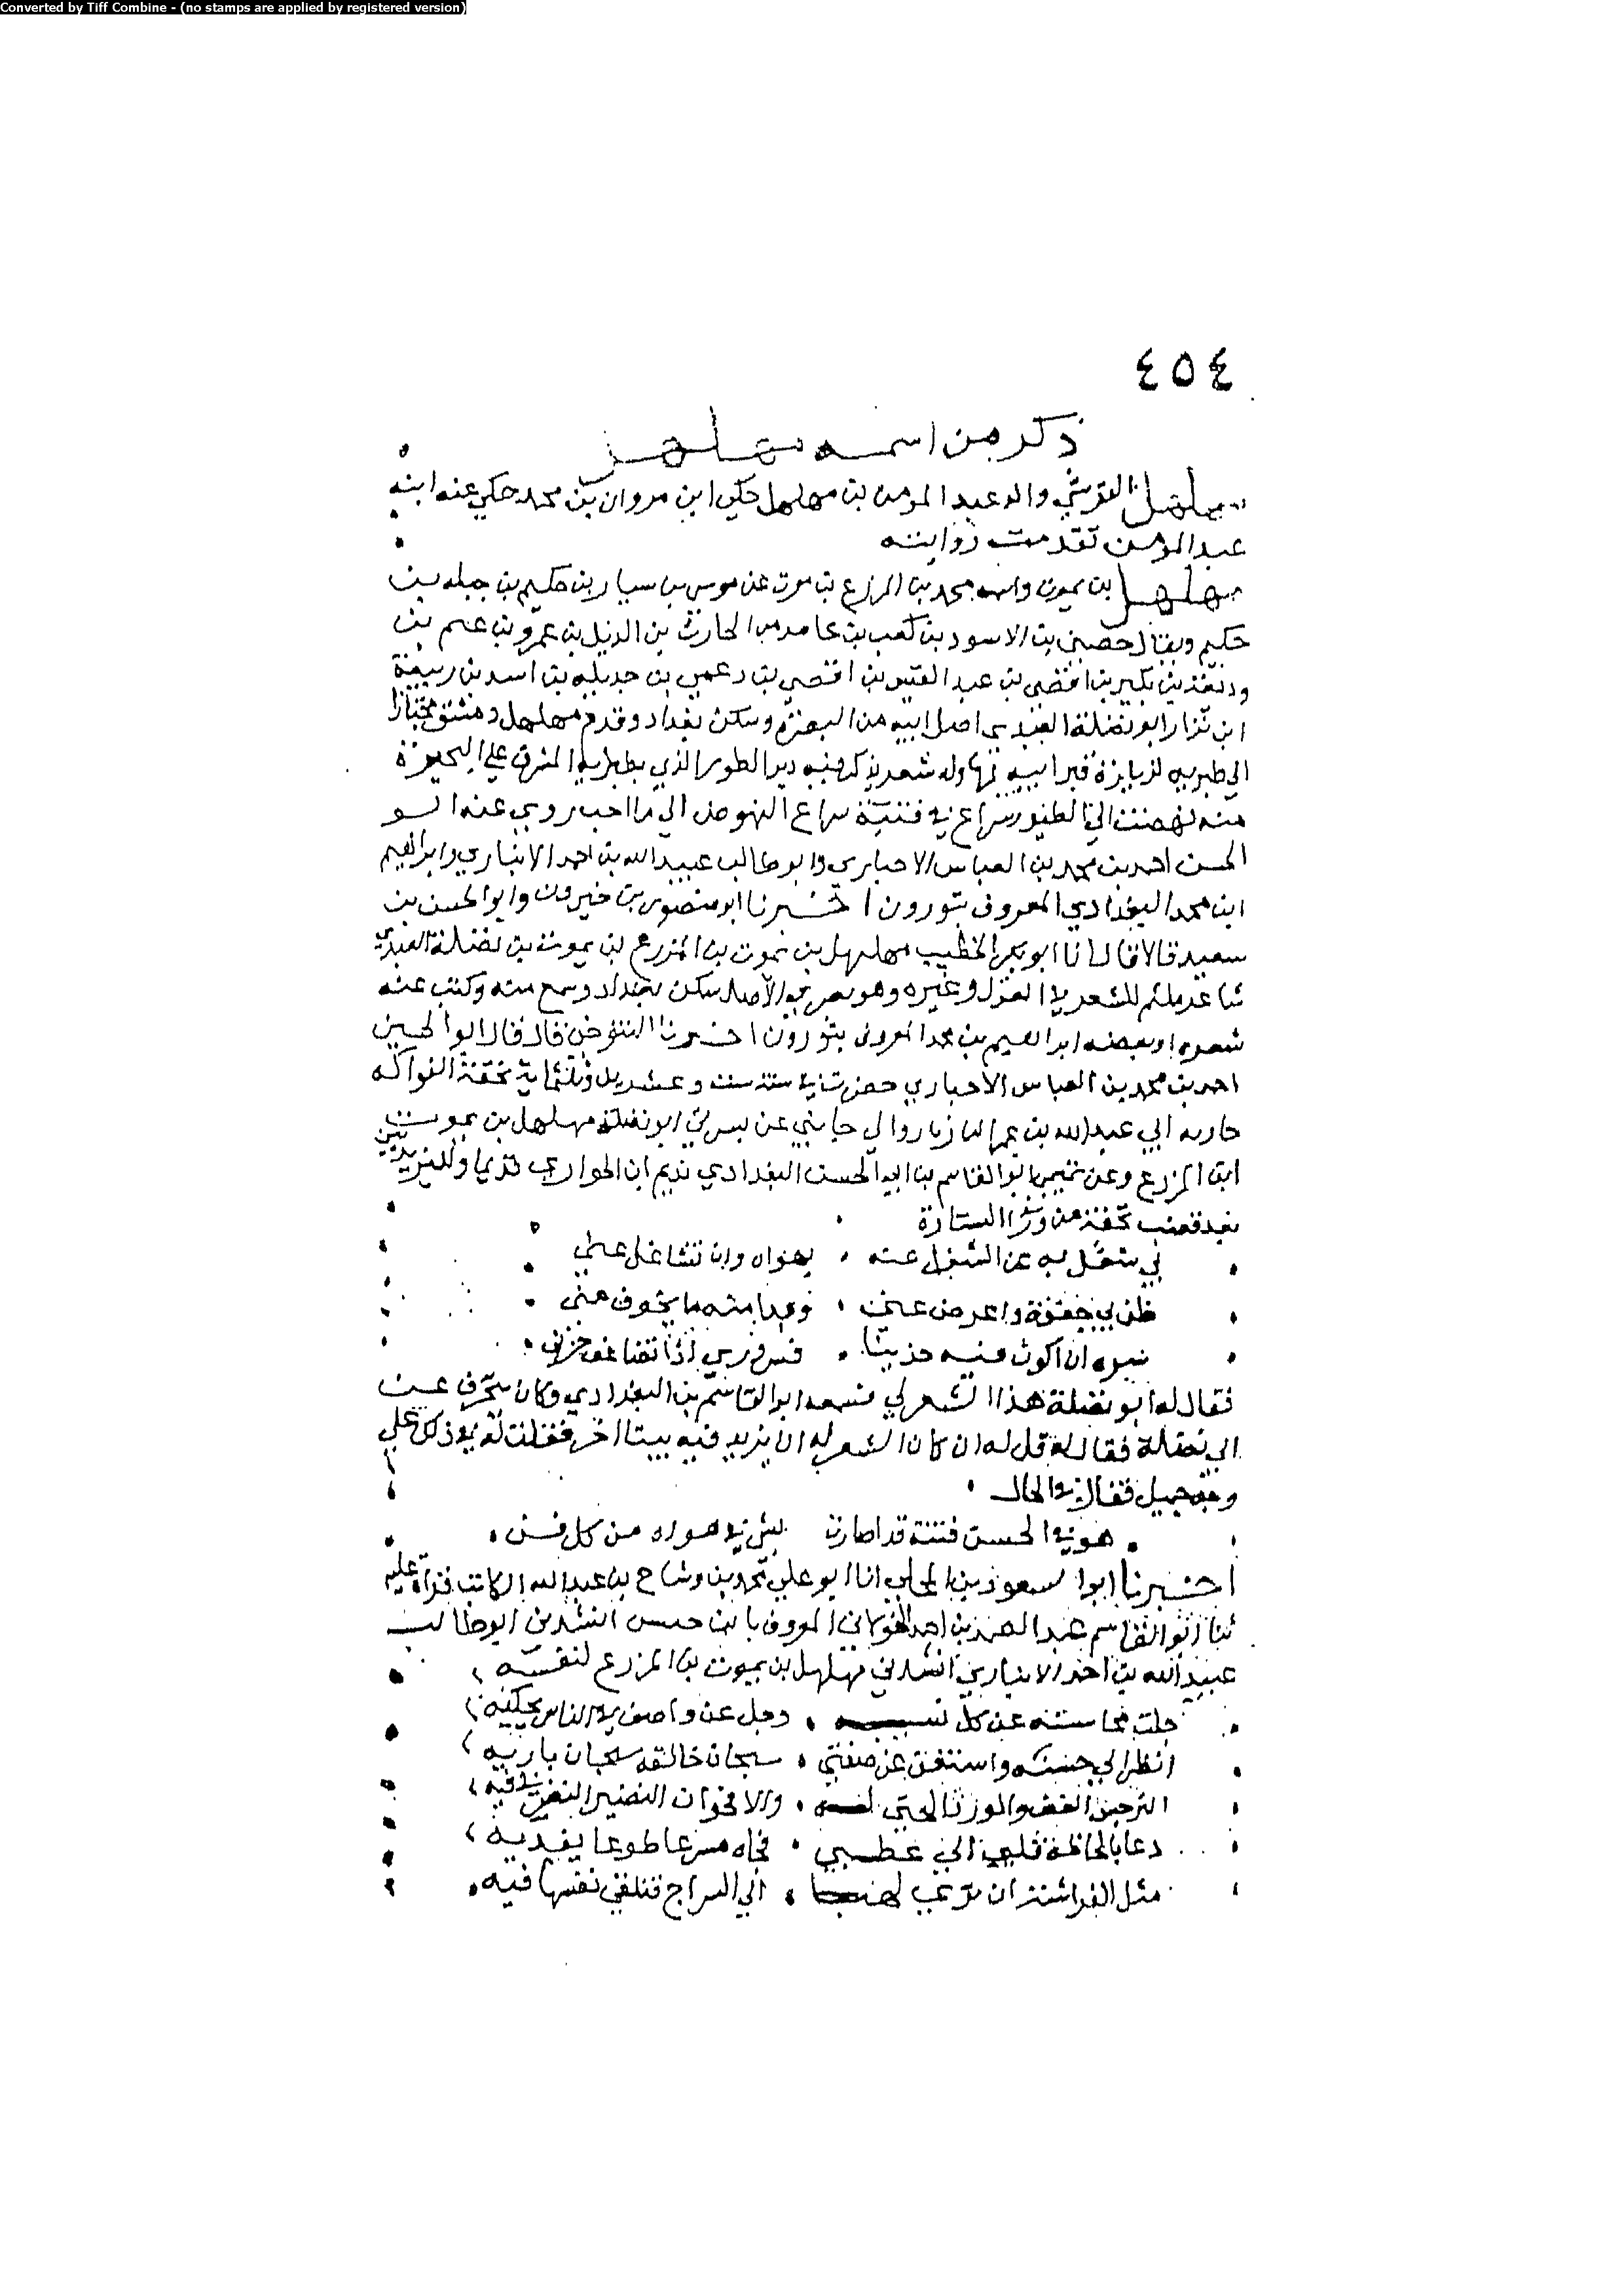 Converted by Tiff Combine - (no stamps are applied by registered version)
٤٥٤
ذكر من اسمه مهلهل
مهلهل القرشي والد عبد المومن بن مهلهل حكي ابن مروان بن محمد حكي عنه ابنه
عبد المومن تقدمت روايته
مهلهل بن يموت واسمه محمد بن المزرع بن موت عن موسى بن سيار بن حكيم بن جبله بن
حكيم ويقال حصين بن الاسود بن كعب بن عامر بن الحارث بن الديل بن عمرو بن غنم بن
وديعة بن بكير بن افصى بن عبد القيس بن افصي بن دعمي بن جديله بن اسد بن ربيعة
ابن نزار ابو نضلة العبدي اصل ابيه من البصرة وسكن بغداد وقدم مهلهل دمشق مجتازا
الي طبريه لزيارة قبر ابيه بها وله شعر يذكر فيه دير الطور الذي بطبرية المشرف علي البحيرة
منه نهضت الي الطور في فتية سراع النهوض الي ما احب روي عنه ابو
الحسن احمد بن محمد بن العباس الاخباري وابو طالب عبيد الله بن احمد الانباري وابراهيم
ابن محمد البغدادي المعروف بتوزون اخبرنا ابو منصور بن خيرون وابو الحسن بن
سعيد قالا قال انا ابو بكر الخطيب مهلهل بن يموت بن المزرع بن يموت بن نضلة العبدي
شاعر مليح الشعر في الغزل وغيره وهو بصري الاصل سكن بغداد وسمع منه وكتب عنه
شعره او بعضه ابراهيم بن محمد المعروف بتوزون اخبرنا التنوخي قال قال ابو الحسين
احمد بن محمد بن العباس الاخباري حضرت في سنة ست وعشرين وثلثماية تحفة القواله
جارية ابي عبد الله بن عمر البازيار والي جانبي عن يسرتي ابو نضلة مهلهل بن يموت
ابن المزرع وعن يميني ابو القاسم بن ابي الحسن البغدادي نديم ابن الحواري قديما والبريديين
بعد فغنت تحفة من ورا الستارة
بي شغل به عن الشغل عنه بهواه وان تشاغل عني
ظن بي جفوة واعرض عني وبدا منه ما يخوف مني
سره ان اكون فيه حزينا فسروري اذا تضاعف حزني
فقال له ابو نضلة هذا الشعر لي فسمعه ابو القاسم بن البغدادي وكان ينحرف عن
ابي نضلة فقال له قل له ان كان الشعر له ان يزيد فيه بيتا اخر فقلت له ذلك علي
وجه جميل فقال في الحال
هو في الحسن فتنة قد اصارت فتنتي في هواه من كل فن
اخبرنا ابو السعود بن المجلي انا ابو علي محمد بن وشاح بن عبد الله الكاتب قراة عليه
ثنا ابو القاسم عبد الصمد بن احمد الخولاني المعروف بابن حبيش انشدني ابو طالب
عبيد الله بن احمد الانباري انشدني مهلهل بن يموت بن المزرع لنفسه
جلت محاسنه عن كل تشبيه وجل عن واصف في الناس يحكيه
انظر الي حسنه واستغن عن صفتي سبحان خالقه سبحان باريه
النرجس الغض والورد الجني له والاقحوان النضير النضر في فيه
دعا بالحاظه قلبي الي عطبي فجاه مسرعا طوعا يلبيه
مثل الفراشة تاتي اذ تري لهبا الي السراج فتلقي نفسها فيه